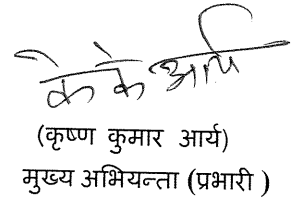 के के आर्य
(कृष्ण कुमार आर्य)
मुख्य अभियन्ता (प्रभारी )